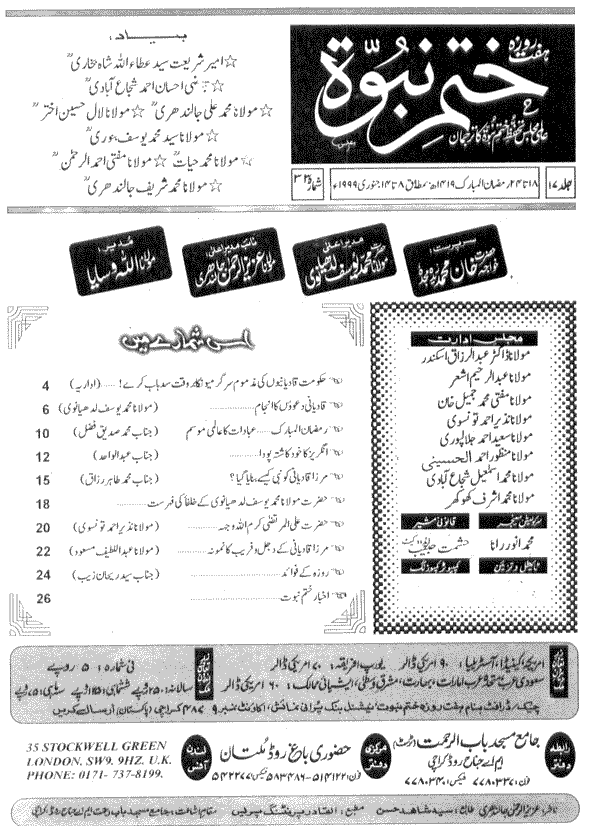 ہفت روزہ
ختم نبوۃ
عالمی مجلس تحفظ ختم نبوۃ کا ترجمان
جلد ۱۷
۱۸ تا ۲۴ رمضان المبارک ۱۴۱۹ھ بمطابق ۸ تا ۱۴ جنوری ۱۹۹۹ء
شمارہ ۳۲
بیاد:
☆ امیر شریعت سید عطاء اللہ شاہ بخاریؒ
احسان احمد شجاع آبادیؒ
☆ مولانا محمد علی جالندھریؒ ☆ مولانا لال حسین اخترؒ
☆ مولانا سید محمد یوسف بنوریؒ
☆ مولانا محمد حیاتؒ ☆ مولانا مفتی احمد الرحمٰنؒ
☆ مولانا محمد شریف جالندھریؒ
سرپرست:
خواجہ خان محمد
مدیر اعلیٰ:
مولانا محمد یوسف لدھیانوی
نائب مدیر اعلیٰ:
مولانا عزیز الرحمٰن جالندھری
مدیر:
مولانا اللہ وسایا
مجلس ادارت
مولانا ڈاکٹر عبدالرزاق اسکندر
مولانا عبدالرحیم اشعر
مولانا مفتی محمد جمیل خان
مولانا نذیر احمد تونسوی
مولانا سعید احمد جلالپوری
مولانا منظور احمد الحسینی
مولانا محمد اسمٰعیل شجاع آبادی
مولانا محمد اشرف کھوکھر
سرکولیشن منیجر
محمد انور رانا
قانونی مشیر
حشمت حبیب ایڈووکیٹ
ٹائٹل و تزئین
کمپیوٹر کمپوزنگ
اس شمارے میں
حکومت قادیانیوں کی مذموم سرگرمیوں کا بروقت سدباب کرے! ..... (اداریہ) 4
قادیانی دعوؤں کا انجام ............ (مولانا محمد یوسف لدھیانوی) 6
رمضان المبارک ........ عبادات کا عالمی موسم (جناب محمد صدیق فضل) 10
انگریز کا خود کاشتہ پودا ............ (جناب عبدالواحد) 12
مرزا قادیانی کو نبی کیسے بنایا گیا؟ (جناب محمد طاہر رزاق) 15
حضرت مولانا محمد یوسف لدھیانوی کے خلفا کی فہرست ............ 18
حضرت علی المرتضٰی کرم اللہ وجہہ ............ (مولانا نذیر احمد تونسوی) 20
مرزا قادیانی کے دجل و فریب کا نمونہ ............ (مولانا عبداللطیف مسعود) 22
روزہ کے فوائد ............ (جناب سید ریحان زیب) 24
اخبار ختم نبوت ............ 26
امریکہ، کینیڈا، آسٹریلیا: ۹۰ امریکی ڈالر یورپ، افریقہ: ۷۰ امریکی ڈالر
سعودی عرب، متحدہ عرب امارات، بھارت، مشرق وسطیٰ، ایشیائی ممالک: ۶۰ امریکی ڈالر
فی شمارہ: ۵ روپے
سالانہ: ۲۵۰ روپے ششماہی: ۱۲۵ روپے سہ ماہی: ۷۵ روپے
چیک/ڈرافٹ بنام ہفت روزہ ختم نبوت، نیشنل بنک پرانی نمائش، اکاؤنٹ نمبر ۹-۴۸۷ کراچی (پاکستان) ارسال کریں
رابطہ دفتر
جامع مسجد باب الرحمت (ٹرسٹ)
ایم اے جناح روڈ کراچی
فون: ۷۷۸۰۳۳۷ فیکس: ۷۷۸۰۳۴۰
مرکزی دفتر
حضوری باغ روڈ ملتان
فون: ۵۱۴۱۲۲-۵۸۳۴۸۶ فیکس: ۵۴۲۲۷۷
لندن آفس
35 STOCKWELL GREEN
LONDON. SW9. 9HZ. U.K.
PHONE: 0171- 737-8199.
ناشر: عزیز الرحمٰن جالندھری طابع: سید شاہد حسن مطبع: القادر پرنٹنگ پریس مقام اشاعت: جامع مسجد باب رحمت ایم اے جناح روڈ کراچی